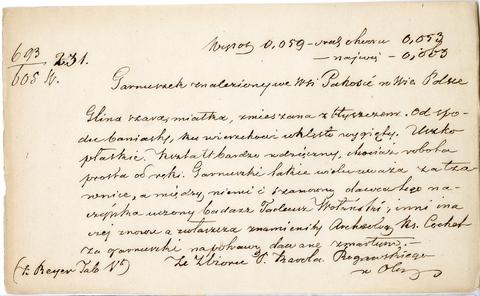 693 231.
605 W.
Wysok 0,059 – urał otworu 0,053
– najwię – 0,063
Garnuszek znaleziony we Wsi Pakość w Wie Polsce
Glina szara, miałka, zmieszana z łyszczem. Od spo-
du baniasty, ku wierzchowi wklęsło wygięty. Uszko
płaskie. Kształt bardzo wdzięczny, chociaż robota
prosta od ręki. Garnuszki takie wielu uważa za łza-
wnice, a między niemi i szanowny dawca tego na-
czyńka uczony badacz Tadeusz Wolański, inni ina-
czej znowu a zwłaszcza znamienity Archeolog Ks. Cochet
za garnuszki na pokarm dawane zmarłym. –
(z Beyer Tab V) Ze Zbioru P. Karola Rogawskiego
w Olp